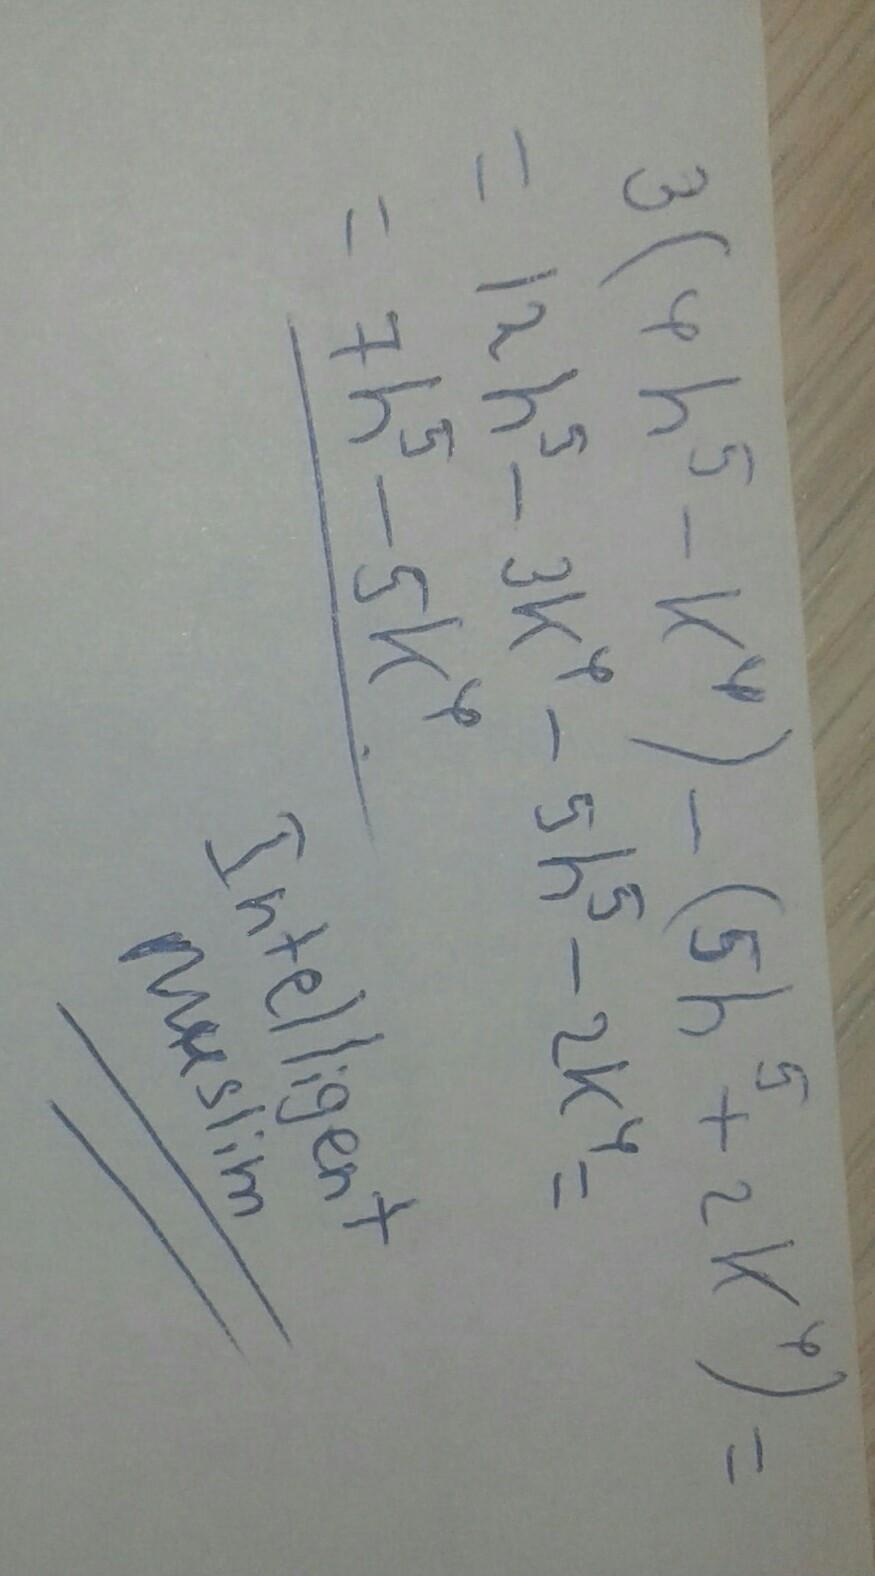 3(4h⁵-k⁴)-(5h⁵+2k⁴)=
=12h⁵-3k⁴-5h⁵-2k⁴=
=7h⁵-5k⁴
Intelligent
Muslim